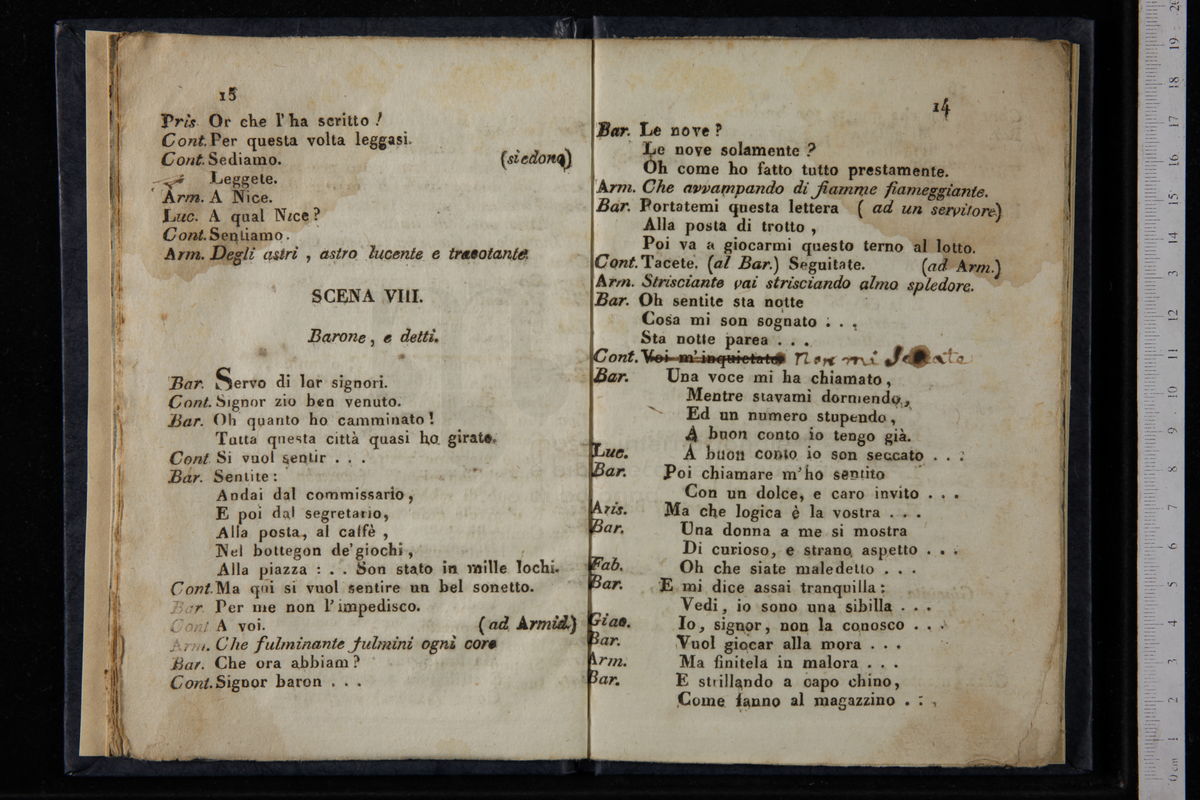 15
Pris. Or che l'ha scritto!
Cont. Per questa volta leggasi.
Cont. Sediamo. (siedono)
Leggete.
Arm. A Nice.
Luc. A qual Nice?
Cont. Sentiamo.
Arm. Degli astri, astro lucente e tracotante
SCENA VIII.
Barone, e detti.
Bar. Servo di lor signori.
Cont. Signor zio ben venuto.
Bar. Oh quanto ho camminato!
Tutta questa città quasi ho girato.
Cont. Si vuol sentir . . .
Bar. Sentite:
Andai dal commissario,
E poi dal segretario,
Alla posta, al caffè,
Nel bottegon de' giochi,
Alla piazza : . . Son stato in mille lochi.
Cont. Ma qui si vuol sentire un bel sonetto.
Bar. Per me non l'impedisco.
Cont. A voi. (ad Armid.)
Arm. Che fulminante fulmini ogni core
Bar. Che ora abbiam?
Cont. Signor baron . . .
14
Bar. Le nove?
Le nove solamente?
Oh come ho fatto tutto prestamente.
Arm. Che avvampando di fiamme fiameggiante.
Bar. Portatemi questa lettera ( ad un servitore)
Alla posta di trotto,
Poi va a giocarmi questo terno al lotto.
Cont. Tacete. (al Bar.) Seguitate. (ad Arm.)
Arm. Strisciante vai strisciando almo spledore.
Bar. Oh sentite sta notte
Cosa mi son sognato : . .
Sta notte parea . . .
Cont. Voi m'inquietate Non mi Seccate
Bar. Una voce mi ha chiamato,
Mentre stavami dormendo,
Ed un numero stupendo,
A buon conto io tengo già.
Luc. A buon conto io son seccato . . :
Bar. Poi chiamare m'ho sentito
Con un dolce, e caro invito . . .
Aris. Ma che logica è la vostra . . .
Bar. Una donna a me si mostra
Di curioso, e strano aspetto . . .
Fab. Oh che siate maledetto . . .
Bar. E mi dice assai tranquilla:
Vedi, io sono una sibilla . . .
Giac. Io, signor, non la conosco . . .
Bar. Vuol giocar alla mora . . .
Arm. Ma finitela in malora . . .
Bar. E strillando a capo chino,
Come fanno al magazzino . : .